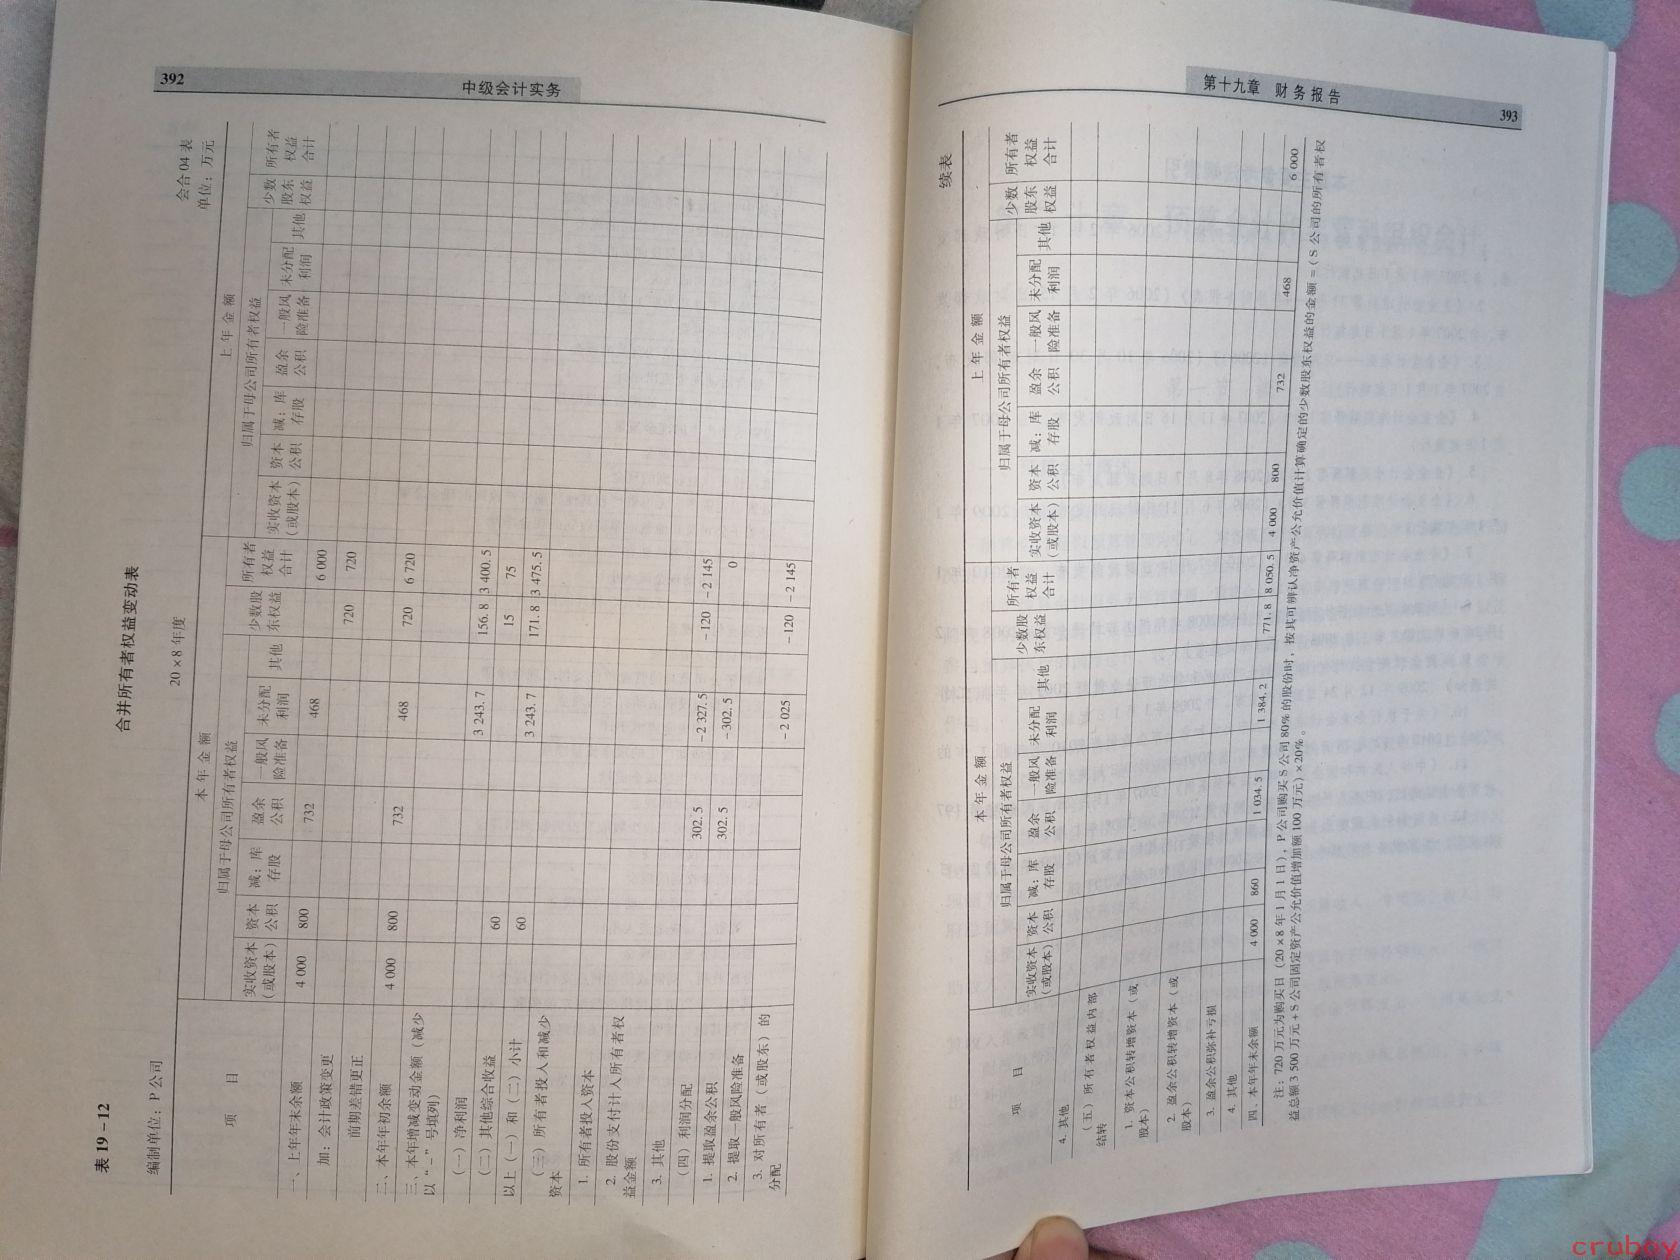 392
中级会计实务
表 19-12
合并所有者权益变动表
会合 04 表
编制单位：P 公司
20×8 年度
单位：万元
项 目
本 年 金 额
上 年 金 额
归属于母公司所有者权益
少数股东权益
所有者权益合计
归属于母公司所有者权益
少数股东权益
所有者权益合计
实收资本（或股本）
资本公积
减：库存股
盈余公积
一般风险准备
未分配利润
其他
实收资本（或股本）
资本公积
减：库存股
盈余公积
一般风险准备
未分配利润
其他
一、上年年末余额 4 000 800 732 468 6 000
加：会计政策变更 720 720
前期差错更正
二、本年年初余额 4 000 800 732 468 720 6 720
三、本年增减变动金额（减少
以“-”号填列）
（一）净利润 3 243.7 156.8 3 400.5
（二）其他综合收益 60 15 75
以上（一）和（二）小计 60 3 243.7 171.8 3 475.5
（三）所有者投入和减少
资本
1. 所有者投入资本
2. 股份支付计入所有者权
益金额
3. 其他
（四）利润分配 302.5 -2 327.5 -120 -2 145
1. 提取盈余公积 302.5 -302.5 0
2. 提取一般风险准备
3. 对所有者（或股东）的
分配 -2 025 -120 -2 145
第十九章 财务报告
393
续表
项 目
本 年 金 额
上 年 金 额
归属于母公司所有者权益
少数股东权益
所有者权益合计
归属于母公司所有者权益
少数股东权益
所有者权益合计
实收资本（或股本）
资本公积
减：库存股
盈余公积
一般风险准备
未分配利润
其他
实收资本（或股本）
资本公积
减：库存股
盈余公积
一般风险准备
未分配利润
其他
4. 其他
（五）所有者权益内部
结转
1. 资本公积转增资本（或
股本）
2. 盈余公积转增资本（或
股本）
3. 盈余公积弥补亏损
4. 其他
四、本年年末余额 4 000 860 1 034.5 1 384.2 771.8 8 050.5 4 000 800 732 468 6 000
注：720 万元为购买日（20×8 年 1 月 1 日），P 公司购买 S 公司 80% 的股份时，按其可辨认净资产公允价值计算确定的少数股东权益的金额 =（S 公司的所有者权
益总额 3 500 万元 + S 公司固定资产公允价值增加额 100 万元）×20%。
cruboy